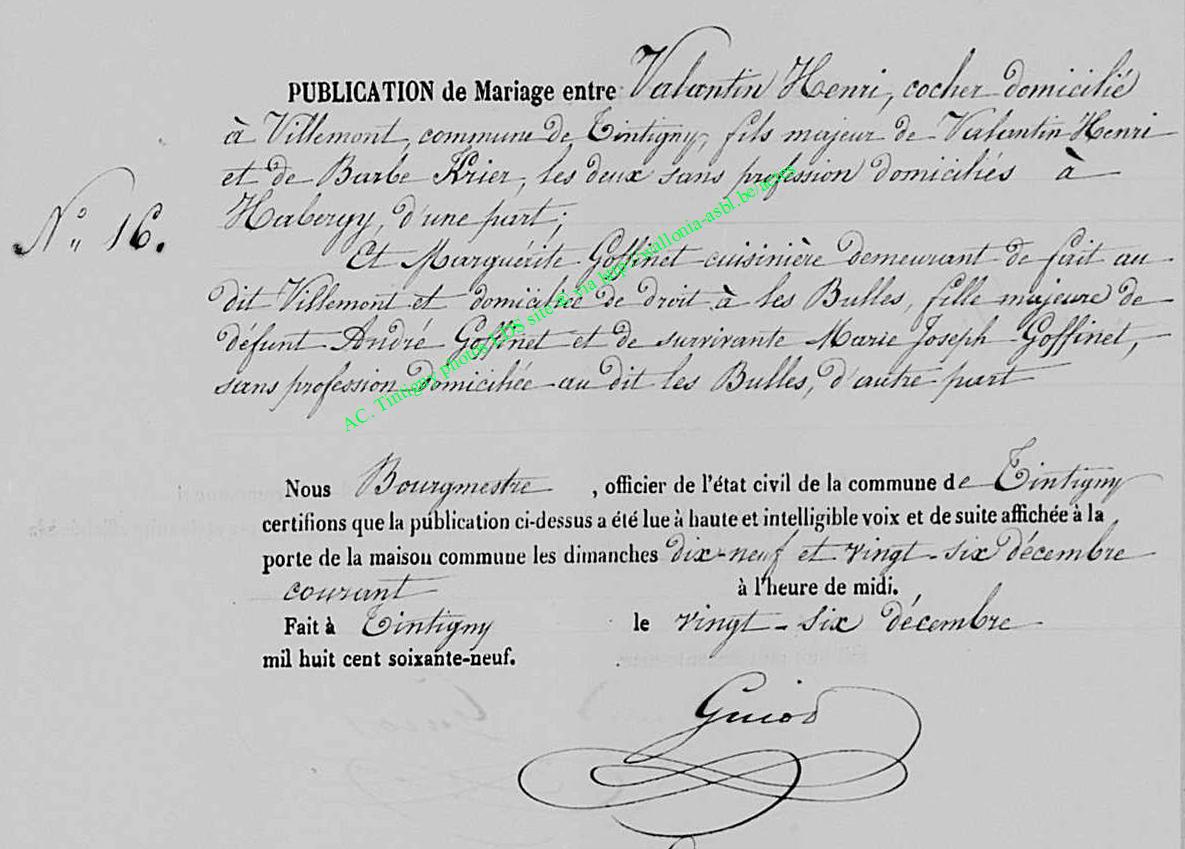 PUBLICATION de Mariage entre Valentin Henri, cocher domicilié
à Villemont, commune de Tintigny, fils majeur de Valentin Henri
et de Barbe Krier, les deux sans profession domiciliés à
Habergy, d'une part;
N° 16.
Et Marguérite Goffinet cuisinière demeurant de fait au
dit Villemont et domiciliée de droit à les Bulles, fille majeure de
défunt André Goffinet et de survivante Marie Joseph Goffinet,
sans profession domiciliée au dit les Bulles, d'autre part
AC. Tintigny photos LDS site via http://wallonia-asbl.be/news
Nous Bourgmestre, officier de l'état civil de la commune de Tintigny
certifions que la publication ci-dessus a été lue à haute et intelligible voix et de suite affichée à la
porte de la maison commune les dimanches dix-neuf et vingt-six décembre
courant à l'heure de midi.
Fait à Tintigny le vingt-six décembre
mil huit cent soixante-neuf.